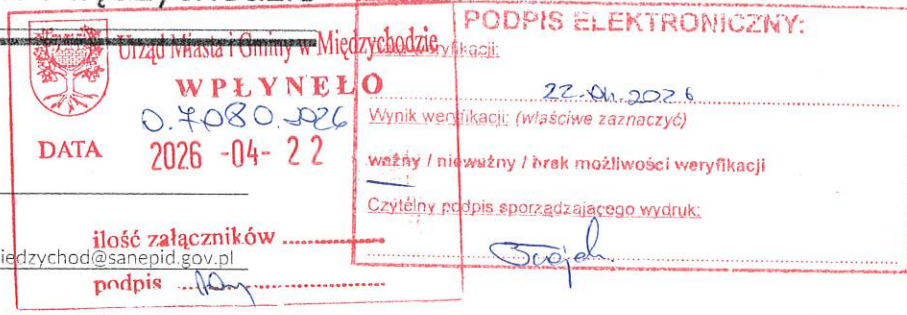 Urząd Miasta i Gminy w Międzychodzie
WPŁYNEŁO
0.7080.2026
DATA 2026 -04- 22
ilość załączników ..................
iedzychod@sanepid.gov.pl
podpis ..................
PODPIS ELEKTRONICZNY:
weryfikacji:
22.04.2026
Wynik weryfikacji: (właściwe zaznaczyć)
ważny / nieważny / brak możliwości weryfikacji
Czytelny podpis sporządzającego wydruk: